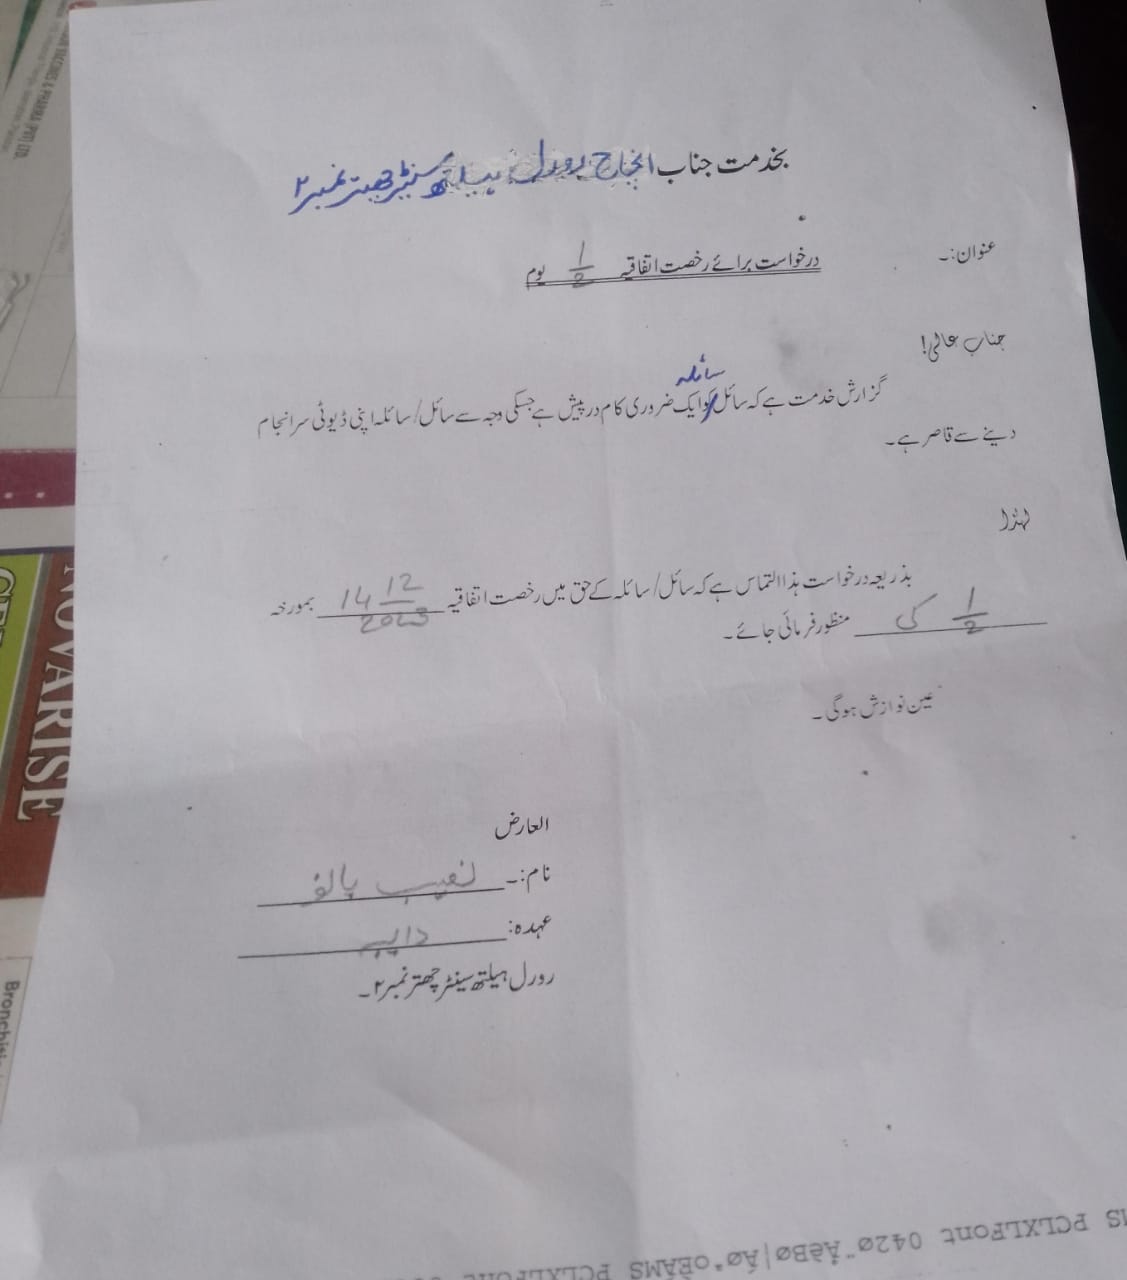 بخدمت جناب انچارج رورل ہیلتھ سنٹر چھتر نمبر ۲
عنوان:۔ درخواست برائے رخصت اتفاقیہ 1/2 یوم
جناب عالی!
سائلہ
گزارش خدمت ہے کہ سائل کو ایک ضروری کام درپیش ہے جسکی وجہ سے سائل/سائلہ اپنی ڈیوٹی سرانجام
دینے سے قاصر ہے۔
لہٰذا
بذریعہ درخواست ہذا التماس ہے کہ سائل/سائلہ کے حق میں رخصت اتفاقیہ 14 12 2023 بمورخہ
1/2 کی منظور فرمائی جائے۔
عین نوازش ہوگی۔
العارض
نام:۔ نصیب
عہدہ: دایہ
رورل ہیلتھ سینٹر چھتر نمبر ۲۔
NOVARISE
Bronchi
MS PCLXLFont 042